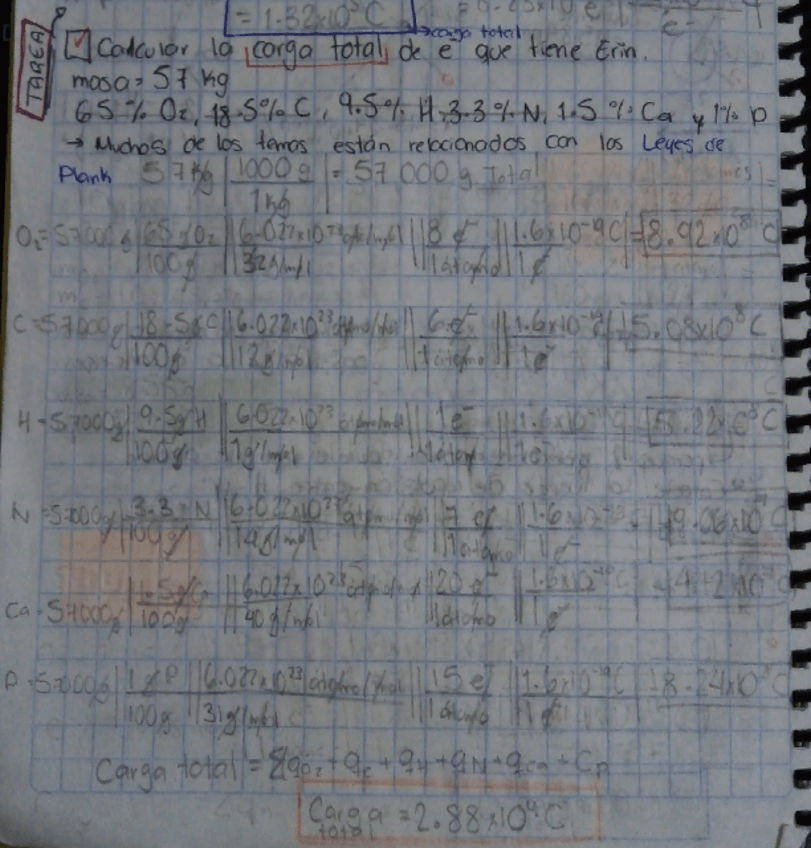 = 1.32x10⁵ C
carga total
e⁻
TAREA
Calcular la carga total de e⁻ que tiene Erin.
masa = 57 kg
65% O₂, 18.5% C, 9.5% H, 3.3% N, 1.5% Ca y 1% P
→ Muchos de los temas están relacionados con las Leyes de
Plank 57 kg | 1000 g / 1 kg | = 57 000 g Total
O₂ = 57000 g | 65 g O₂ / 100 g || 6.022x10²³ / 32 g/mol || 8 e⁻ / 1 átomo || 1.6x10⁻¹⁹ C / 1 e⁻ | = 8.92x10⁸ C
C = 57000 g | 18.5 g C / 100 g || 6.022x10²³ átomo/mol / 12 g/mol || 6 e⁻ / 1 átomo || 1.6x10⁻¹⁹ C / 1 e⁻ | = 5.08x10⁸ C
H = 57000 g | 9.5 g H / 100 g || 6.022x10²³ átomo/mol / 1 g/mol || 1 e⁻ / 1 átomo || 1.6x10⁻¹⁹ C / 1 e⁻
N = 57000 g | 3.3 g N / 100 g || 6.022x10²³ átomo/mol / 14 g/mol || 7 e⁻ / 1 átomo || 1.6x10⁻¹⁹ C / 1 e⁻ | 9.06x10⁷ C
Ca = 57000 g | 1.5 g Ca / 100 g || 6.022x10²³ átomo/mol / 40 g/mol || 20 e⁻ / 1 átomo || 1.6x10⁻¹⁹ C / 1 e⁻
P = 57000 g | 1 g P / 100 g || 6.022x10²³ átomo/mol / 31 g/mol || 15 e⁻ / 1 átomo || 1.6x10⁻¹⁹ C / 1 e⁻
Carga total = Σ qO₂ + qC + qH + qN + qCa + CP
Carga total = 2.88x10⁴ C